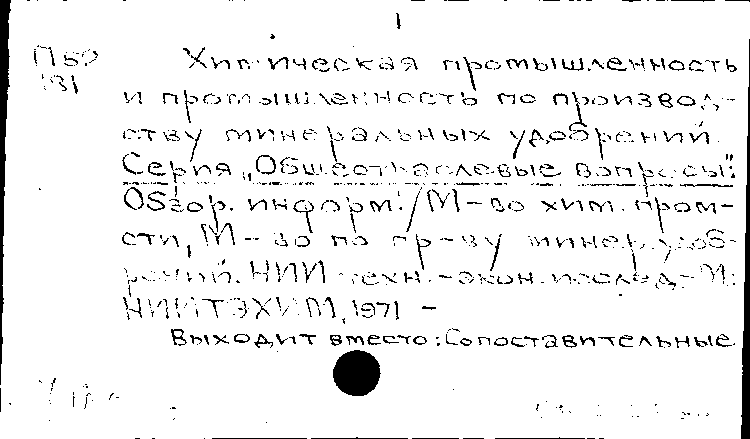 1
П 52
131
Химическая промышленность
и промышленность по производ-
ству минеральных удобрений.
Серия „Общеотраслевые вопросы":
Обзор. информ. / М-во хим. пром-
сти, М-во по пр-ву минер. удоб-
рений. НИИ техн.-экон. исслед.-М.:
НИИТЭХИМ, 1971 -
Выходит вместо: Сопоставительные